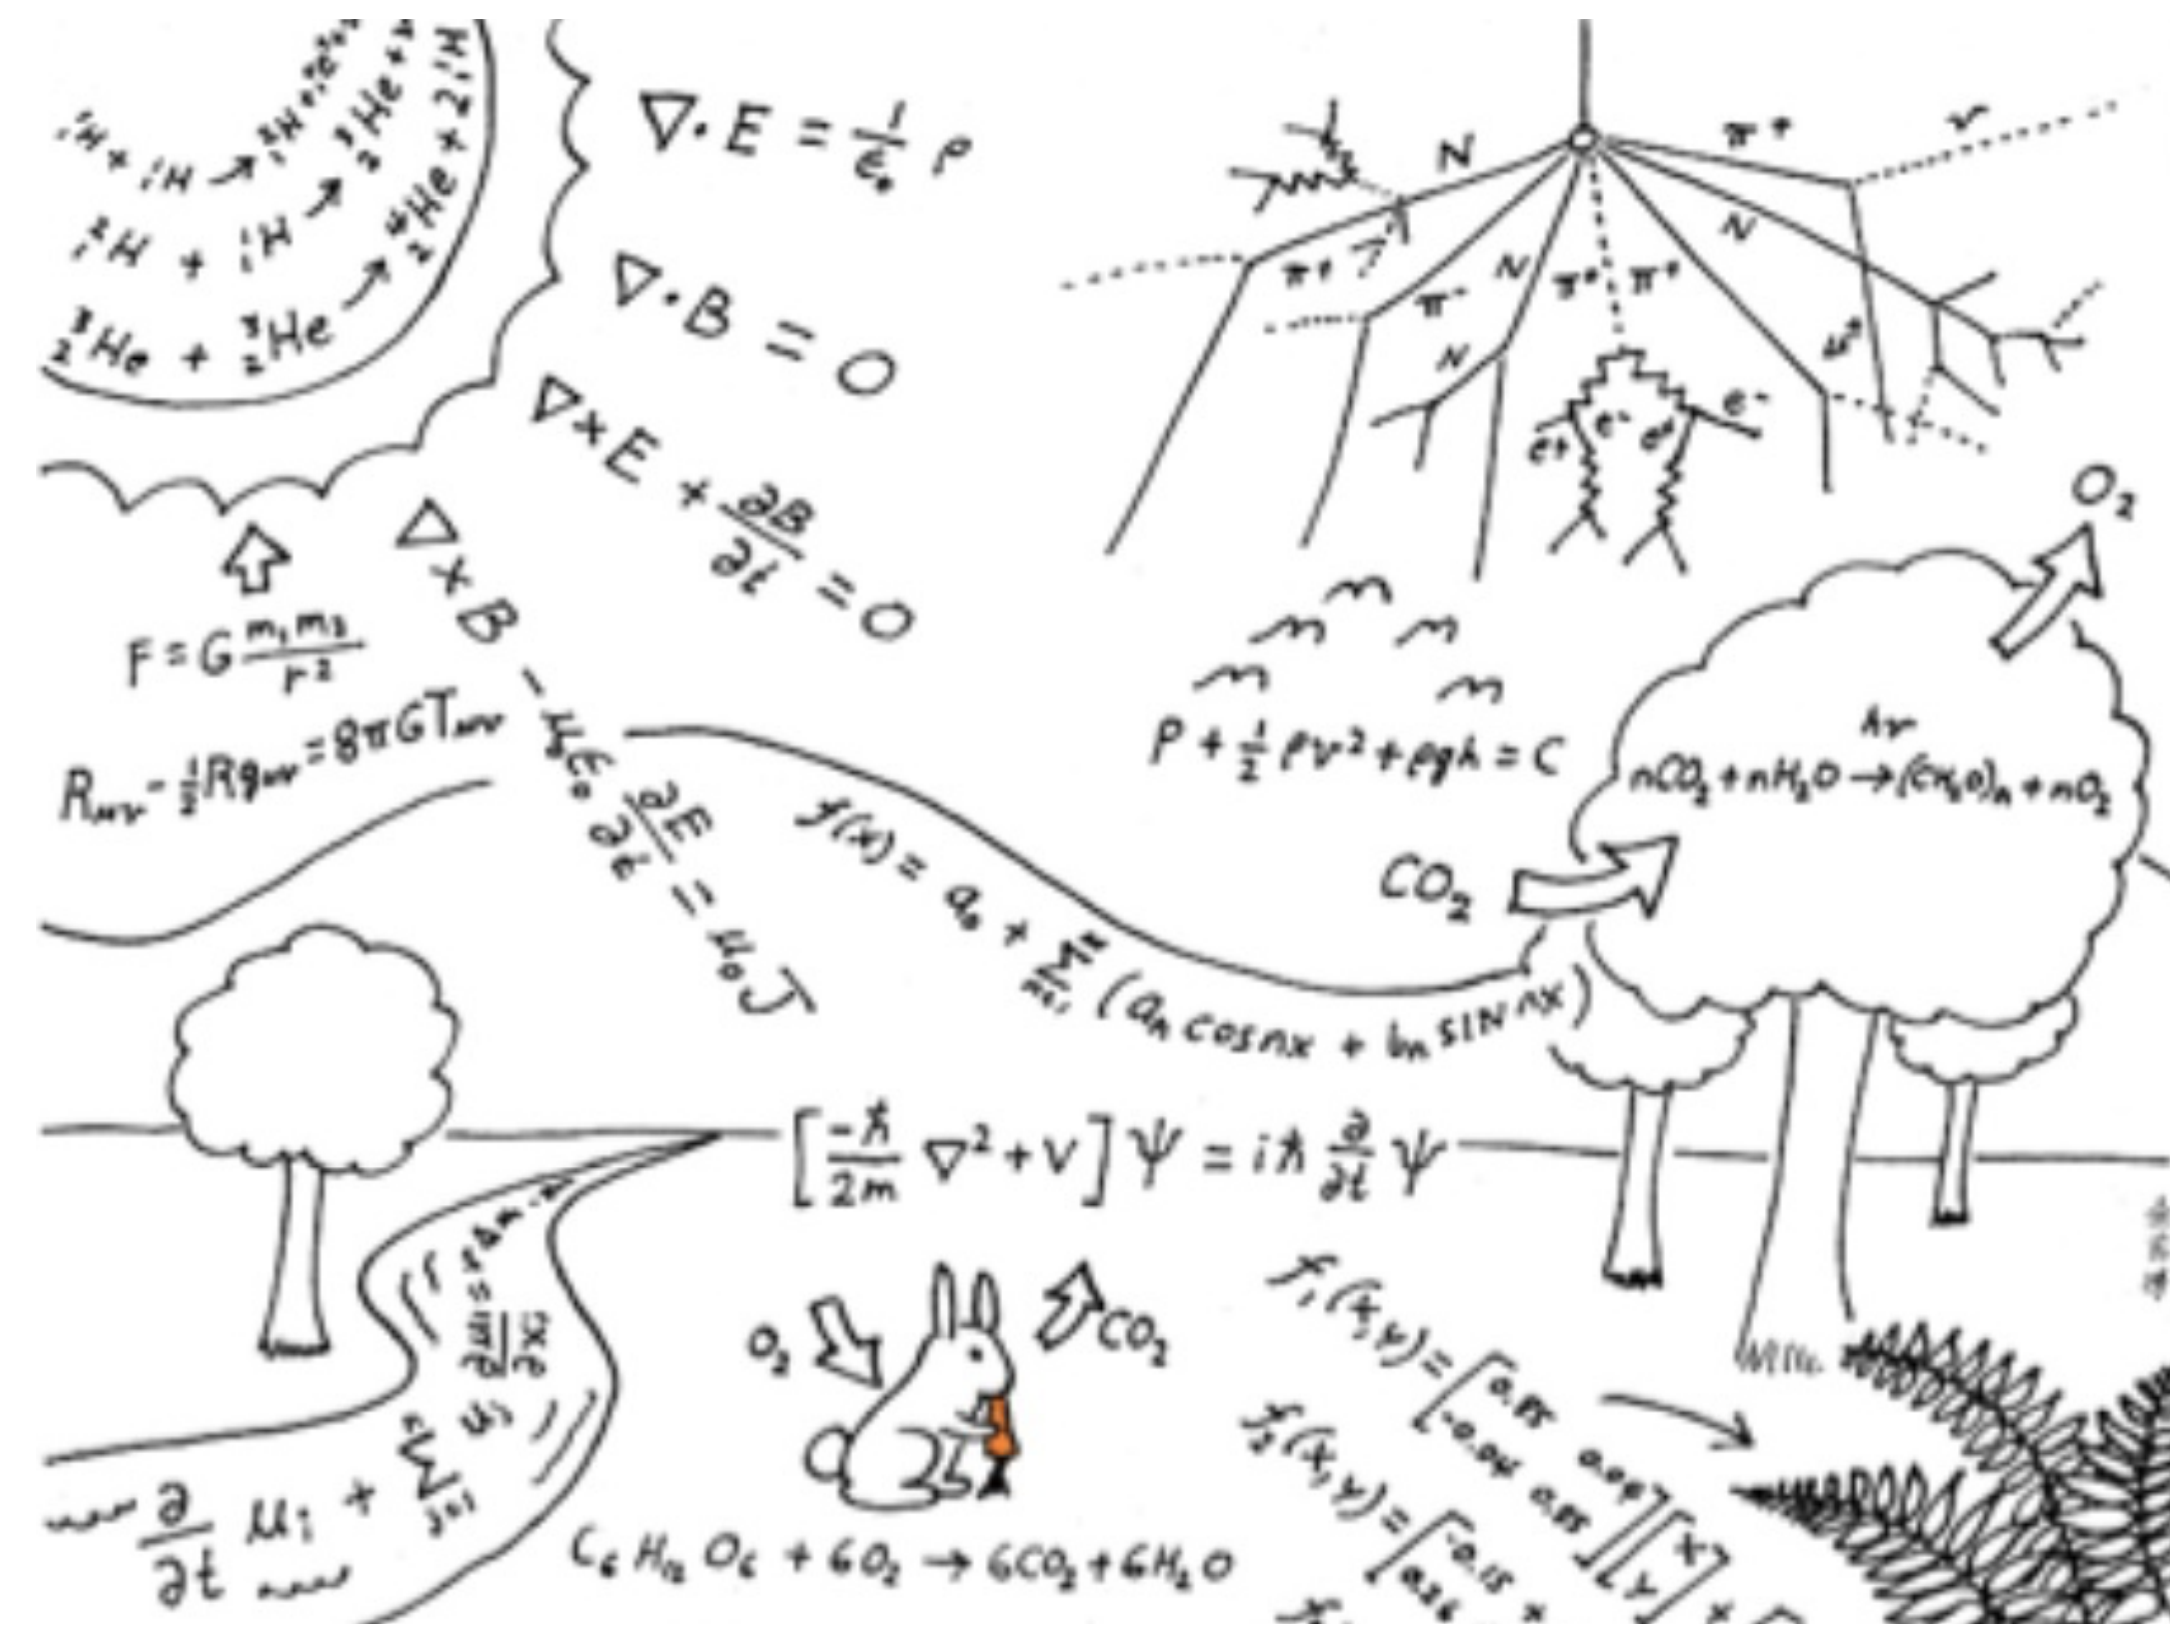 ¹₁H + ¹₁H → ²₁H +
²₁H + ¹₁H → ³₂He +
³₂He + ³₂He → ⁴₂He + 2¹₁H
∇·E = 1/ε₀ ρ
∇·B = 0
∇×E + ∂B/∂t = 0
∇×B - μ₀ε₀ ∂E/∂t = μ₀J
F = G m₁m₂/r²
Rμν - ½Rgμν = 8πGTμν
N
π⁺
ν
N
π⁺
π⁻
N
N
π⁰
π⁺
e⁺
e⁻
e⁺
e⁻
O₂
P + ½ρv² + ρgh = C
hν
nCO₂ + nH₂O → (CH₂O)ₙ + nO₂
CO₂
f(x) = a₀ + Σ (aₙ cos nx + bₙ sIN nx)
[-ħ/2m ∇² + V] Ψ = iħ ∂/∂t Ψ
∂/∂t uᵢ + Σⁿⱼ₌₁ uⱼ ∂uᵢ/∂xⱼ = νΔu
O₂
CO₂
C₆H₁₂O₆ + 6O₂ → 6CO₂ + 6H₂O
f₁(x,y) = [0.85 0.04 -0.04 0.85][x y] +
f₂(x,y) = [-0.15
0.26